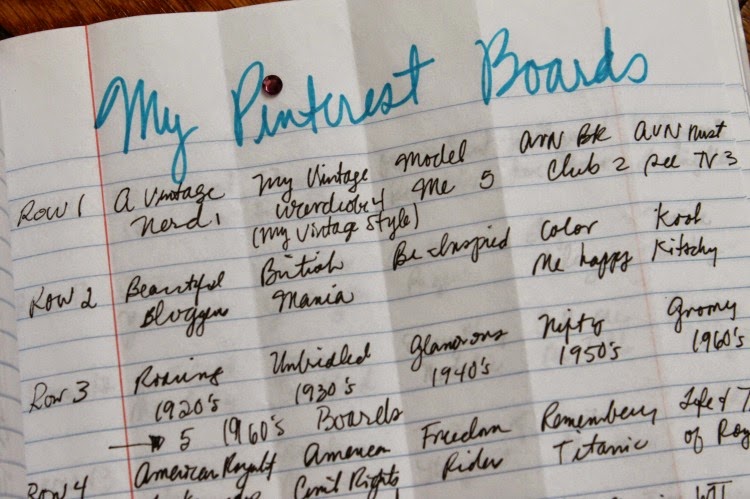 My Pinterest Boards
Row 1 A Vintage My Vintage Model AVN BK AVN Must
Nerd 1 Wardrobe 4 Me 5 Club 2 See TV 3
(My Vintage Style)
Row 2 Beautiful British Be Inspired Color Kool
Bloggers Mania Me happy Kitschy
Row 3 Roaring Unbridled Glamorous Nifty Groovy
1920's 1930's 1940's 1950's 1960's
5 1960's Boards
Row 4 American Royalty American Freedom Remembering Life &
Civil Rights Rider Titanic of